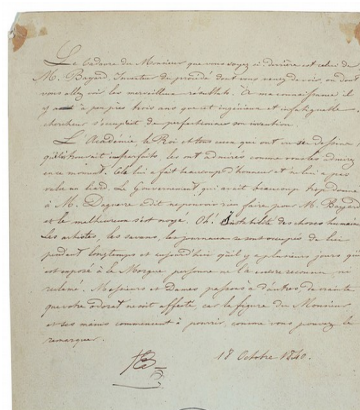 Le cadavre du Monsieur que vous voyez ci-derrière est celui de
M. Bayard, Inventeur du procédé dont vous venez de voir, ou dont
vous allez voir les merveilleux résultats. A ma connaissance il
y a à peu près trois ans que cet ingénieux et infatigable
chercheur s'occupait de perfectionner son invention.
L'Académie, le Roi et tous ceux qui ont vu ses dessins
les ont admirés comme vous les admirez
en ce moment. Cela lui a fait beaucoup d'honneur et ne lui a pas
valu un liard. Le Gouvernement qui avait beaucoup trop donné
à M. Daguerre a dit ne pouvoir rien faire pour M. Bayard
et le malheureux s'est noyé. Oh! Instabilité des choses humaines
Les artistes, les savans, les journaux se sont occupés de lui
pendant longtemps et aujourd'hui qu'il y a plusieurs jours qu'il
est exposé à la Morgue personne ne l'a encore reconnu, ni
réclamé. Messieurs et Dames, passons à d'autres, de crainte
que votre odorat ne soit affecté, car la figure du Monsieur
et ses mains commencent à pourrir, comme vous pouvez le
remarquer.
18 Octobre 1840.